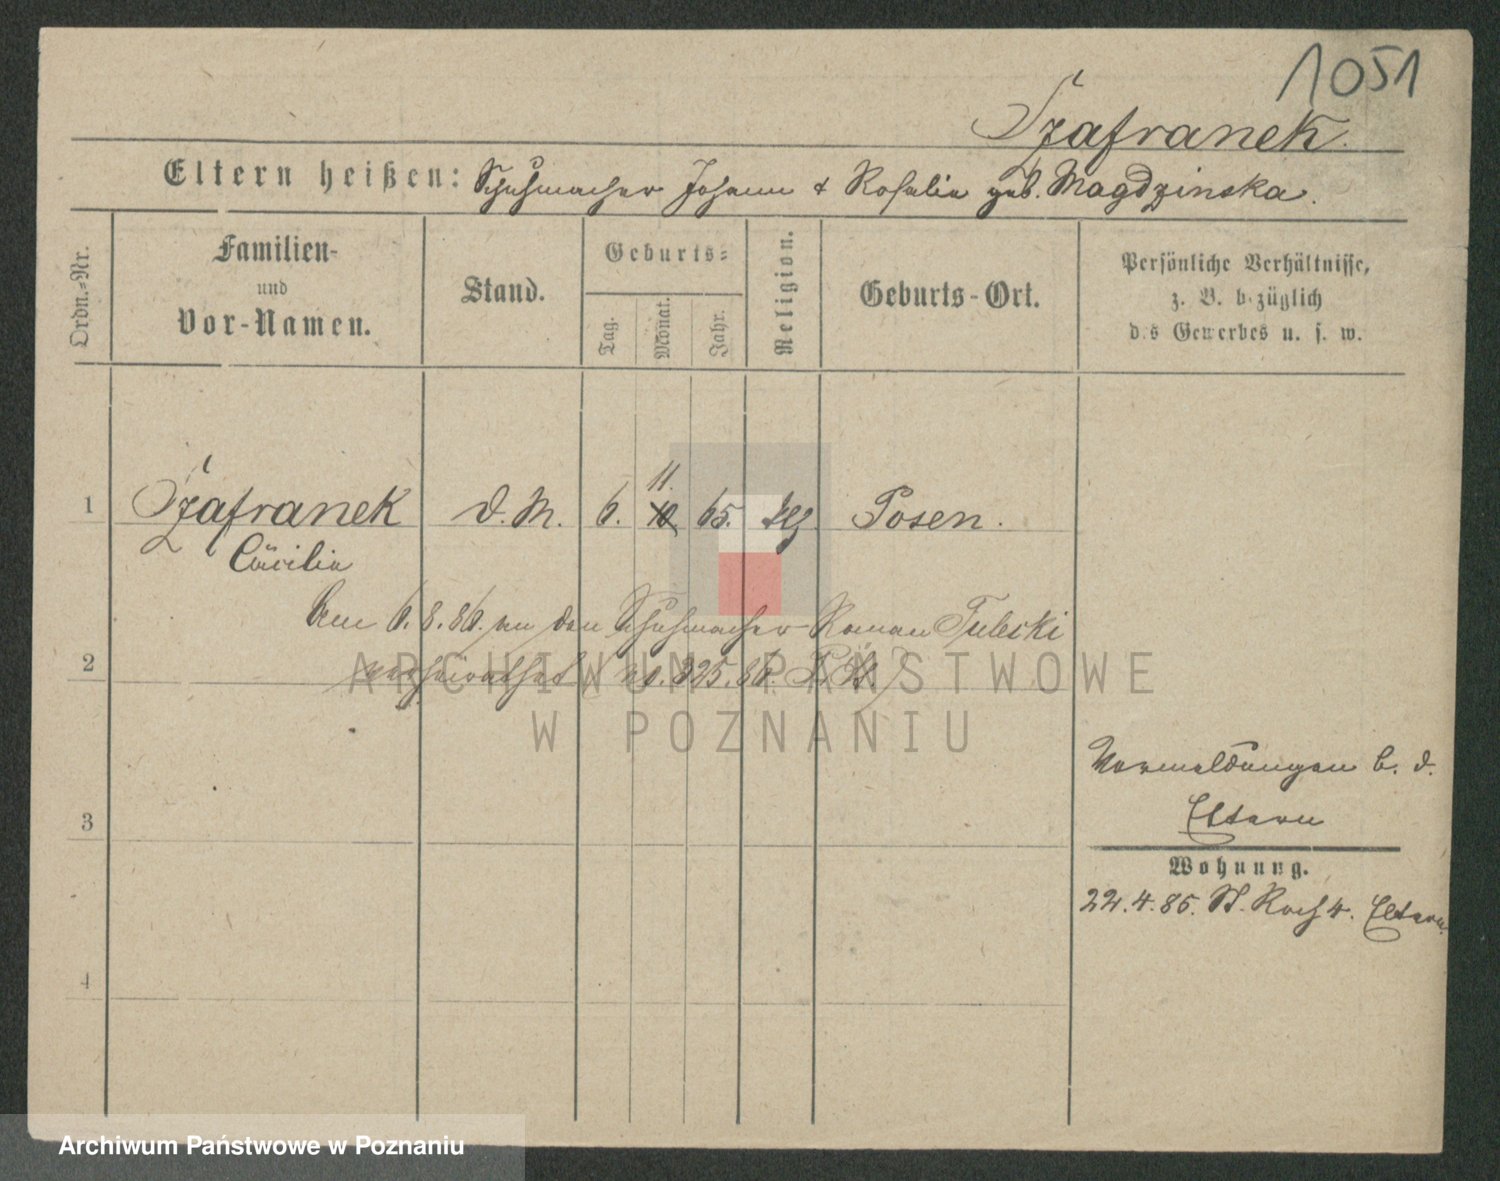 1051
Szafranek.
Eltern heißen: Schuhmacher Johann & Rosalie geb. Magdzinska.
Ordn.-Nr.
Familien-
und
Vor-Namen.
Stand.
Geburts-
Tag.
Monat.
Jahr.
Religion.
Geburts-Ort.
Persönliche Verhältnisse,
z. B. bezüglich
des Gewerbes u. s. w.
11.
1 Szafranek d. M. 6. 10 65. Posen.
Cäcilie
Am 6.8.86. an den Schuhmacher Roman Tuleski
2 verheirathet (No. 325.86.
ARCHIWUM PAŃSTWOWE
W POZNANIU
Vormeldungen b. d.
3 Eltern
Wohnung.
22.4.85. St. Roch 4. Eltern.
4
Archiwum Państwowe w Poznaniu